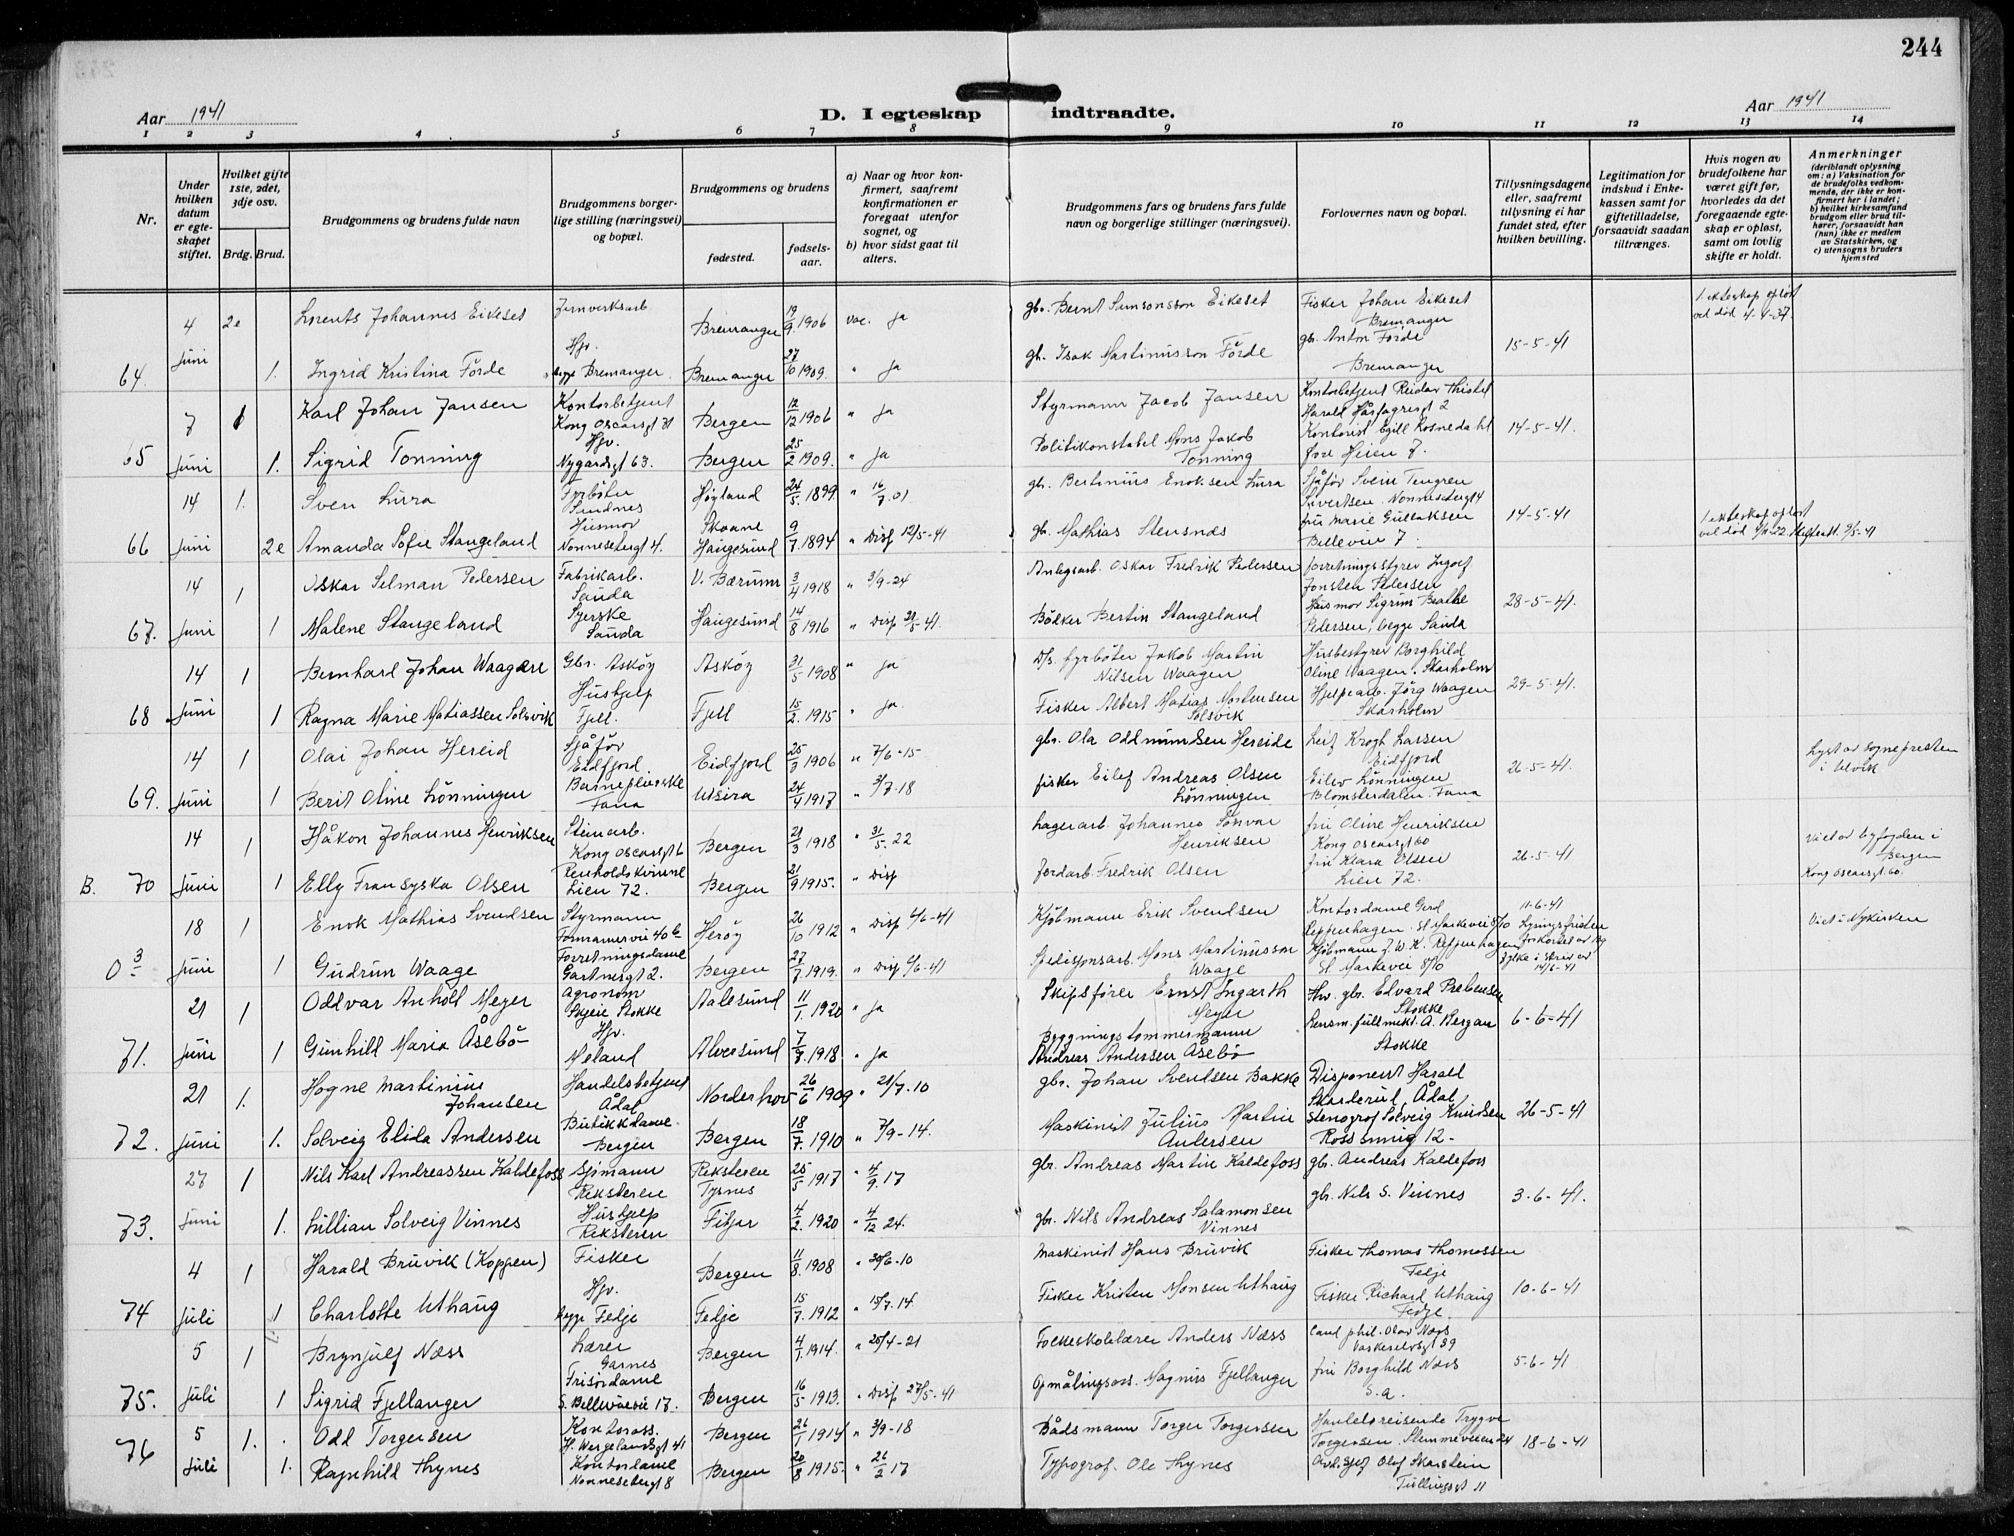 244
Aar 1941
D. I egteskap indtraadte.
Aar 1941
1 2 3 4 5 6 7 8 9 10 11 12 13 14
Nr.
Under hvilken datum er egteskapet stiftet.
Hvilket gifte 1ste, 2det, 3dje osv.
Brdg. Brud.
Brudgommens og brudens fulde navn
Brudgommens borgerlige stilling (næringsvei) og bopæl.
Brudgommens og brudens
fødested.
fødselsaar.
a) Naar og hvor konfirmert, saafremt konfirmationen er foregaat utenfor sognet, og
b) hvor sidst gaat til alters.
Brudgommens fars og brudens fars fulde navn og borgerlige stillinger (næringsvei).
Forlovernes navn og bopæl.
Tillysningsdagene eller, saafremt tillysning ei har fundet sted, efter hvilken bevilling.
Legitimation for indskud i Enkekassen samt for giftetilladelse, forsaavidt saadan tiltrænges.
Hvis nogen av brudefolkene har været gift før, hvorledes da det foregaaende egteskap er opløst, samt om lovlig skifte er holdt.
Anmerkninger
(deriblandt oplysning om: a) Vaksination for de brudefolks vedkommende, der ikke er konfirmert her i landet; b) hvilket kirkesamfund brudgom eller brud tilhører, forsaavidt han (hun) ikke er medlem av Statskirken, og c) utensogns bruders hjemsted
4 2e Lorents Johannes Eikeset Jernverksarb Bremanger 19/9 1906 vac. ja gbr. Bernt Simonsson Eikeset Fisker Johan Eikeset Bremanger 1. ekteskap opløst ved død 4-4-37.
64. Juni 1. Ingrid Kristina Førde Hjv. begge Bremanger Bremanger 27/10 1909. " ja gb. Isak Martinusson Førde gb. Anton Førde Bremanger 15-5-41
7 1 Karl Johan Jansen Kontorbetjent Kong Oscarsgt 71 Bergen 12/12 1906 " ja Styrmann Jacob Jansen Kontorbetjent Reidar Thistel Harald Hårfagresgt 2
65 Juni 1. Sigrid Tonning Hjv. Nygårdsgt 63. Bergen 25/2 1909. " ja Politikonstabel Mons Jakob Tonning Kontorist Egill Rosnedahl 14-5-41.
14 1. Sven Lura Fyrbøter Sandnes Høyland 24/5 1899. " 16/7.01 gb. Bertinius Enoksen Lura Sjåfør Svein Tengren Sivertsen. Nonnesetergt 4
66 Juni 2e Amanda Sofie Stangeland Husmor Nonnesetergt 4. Skaane Haugesund 9/7 1894 " Disp 12/5-41 gb. Mathias Stensnæs fru Marie Gullaksen Bellevue 7 14-5-41 1 ekteskap opløst
14 1 Oskar Selman Pedersen Fabrikarb. Sauda V. Bærum 3/4 1918 " 3/9-24 Anlegsarb. Oskar Fredrik Pedersen Forretningsstyrer Ingolf Pedersen
67. Juni 1 Malene Stangeland Syerske Sauda Haugesund 14/8 1916 " Disp 28/5-41. Bøkker Bertin Stangeland Husmor Sigrun Beathe Pedersen, begge Sauda 28-5-41.
14 1 Bernhard Johan Waagene Gbr. Askøy Askøy 31/5 1908 " ja D/s fyrbøter Jakob Martin Nilsen Waagen Husbestyrer Borghild Oline Waagen. Skarholm
68 Juni 1 Ragna Marie Matiassen Solsvik Hushjelp Fjell. Fjell 15/2. 1915 " ja. Fisker Albert Matias Mortensen Solsvik Hjelpearb. Jörg Waagen Skarholm 29-5-41.
14 1 Olai Johan Hereid Sjåfør Eidfjord Eidfjord 25/3 1906 " 7/6-15 gbr. Ola Oddmundsen Hereide Leif Krogh Larsen Eidfjord Lyst av sognepresten i Ulvik
69. Juni 1 Berit Oline Lønningen Barnepleierske Fana Utsira 24/4 1917 " 3/7.18 fisker Eilef Andreas Olsen Lønningen Eilev Lønningen Blomsterdalen. Fana 26-5-41.
14 1 Håkon Johannes Henriksen Steinarb. Kong Oscarsgt 6 Bergen 21/3 1918 " 31/5.22 Lagerarb. Johannes Henriksen fru Oline Henriksen Kong Oscarsgt 60 Viet av byfogden i Bergen Kong Oscarsgt. 60.
B. 70 Juni 1 Elly Fransyska Olsen Renholdskvinne Lien 72. Bergen 21/9 1915. " Disp Jordarb. Fredrik Olsen fru Klara Olsen Lien 72. 26-5-41
18 1 Enok Mathias Svendsen Styrmann Herøy 26/10 1912 " Disp 6/6-41 Kjølmann Erik Svendsen Kontordame Gerd Reppenhagen. St Markevei 8/10 11-6-41 Viet i Nykirken
O 3 Juni 1 Gudrun Waage Forretningsdame Gartnergt 2. Bergen 27/7 1919. " Disp 6/6-41 Spedisjonsarb. Mons Martinusson Waage St Markevei 8/10 14/6-41
21 1 Oddvar Anholt Meyer Agronom Skjeie Stokke Aalesund 11/1. 1920 " ja Skipsfører Ernst Ingarth Meyer Hr. gbr. Edvard Prebensen Stokke
71. Juni 1 Gunhild Maria Åsebø Hjv. Meland Alversund 7/9. 1918 " ja Bygningstømmermann Andreas Andersen Åsebø Lensm. fullmekt. A. Bergan Stokke 6-6-41
21 1. Hogne Martinius Johansen Handelsbetjent Ådal Norderhov 26/6 1909 " 21/7.10 gbr. Johan Svendsen Bakke Disponent Harald Skarderud, Ådal
72. Juni 1. Solveig Elida Andersen Butikkdame. Bergen Bergen 18/7. 1910 " 7/9-14. Maskinist Julius Martin Andersen Stenograf Solveig Knudsen 12- 26-5-41
27 1 Nils Karl Andreassen Kaldefoss Sjømann Reksteren Reksteren Tysnes 25/5 1917 " 4/9.17 gbr. Andreas Martin Kaldefoss gbr. Andreas Kaldefoss
73. Juni 1. Lillian Solveig Vinnes Hushjelp Reksteren Fitjar 4/2. 1920 " 4/12 24. gbr. Nils Andreas Salamonsen Vinnes gbr. Nils S. Vinnes 3-6-41.
4 1 Harald Bruvik (Koppen) Fisker Bergen 11/8. 1908 " 30/6-10 Maskinist Hans Bruvik Fisker Thomas Thomassen Fedje
74 Juli 1 Charlotte Uthaug Hjv. begge Fedje Fedje 15/7. 1912 " 15/7.14. Fisker Kristen Monsen Uthaug Fisker Richard Uthaug Fedje 10-6-41
5 1 Brynjulf Næss Lærer Garnes Bergen 4/1. 1914. " 25/4-21 Folkeskolelærer Anders Næss Cand phil. Olav Næss
75. Juli 1 Sigrid Fjellanger Frisørdame S. Bellevuevei 17. Bergen 16/5 1913. " Disp 27/5-41 Opmålingsass. Magnus Fjellanger fru Borghild Næss s.a. 5-6-41
5 1. Odd Torgersen Kontorass. H. Wergelandsgt 41 Bergen 26/1 1914 " 3/9-18 Bådsmann Torger Torgersen Handelsreisende Trygve Torgersen. Slemmeveien 24
76 Juli 1. Ragnhild Thynes Kontordame Nonnesetergt 8 Bergen 20/8 1915. " 26/2 17 Typograf. Ole Thynes Olaf Skarstein 11 18-6-41